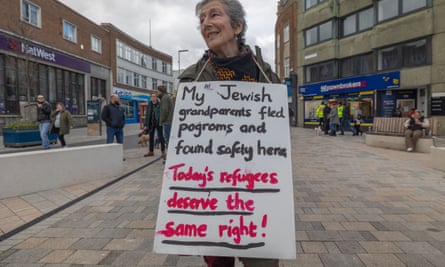 NatWest
My Jewish
grandparents fled
pogroms and
found safety here
Today's refugees
deserve the
same right!